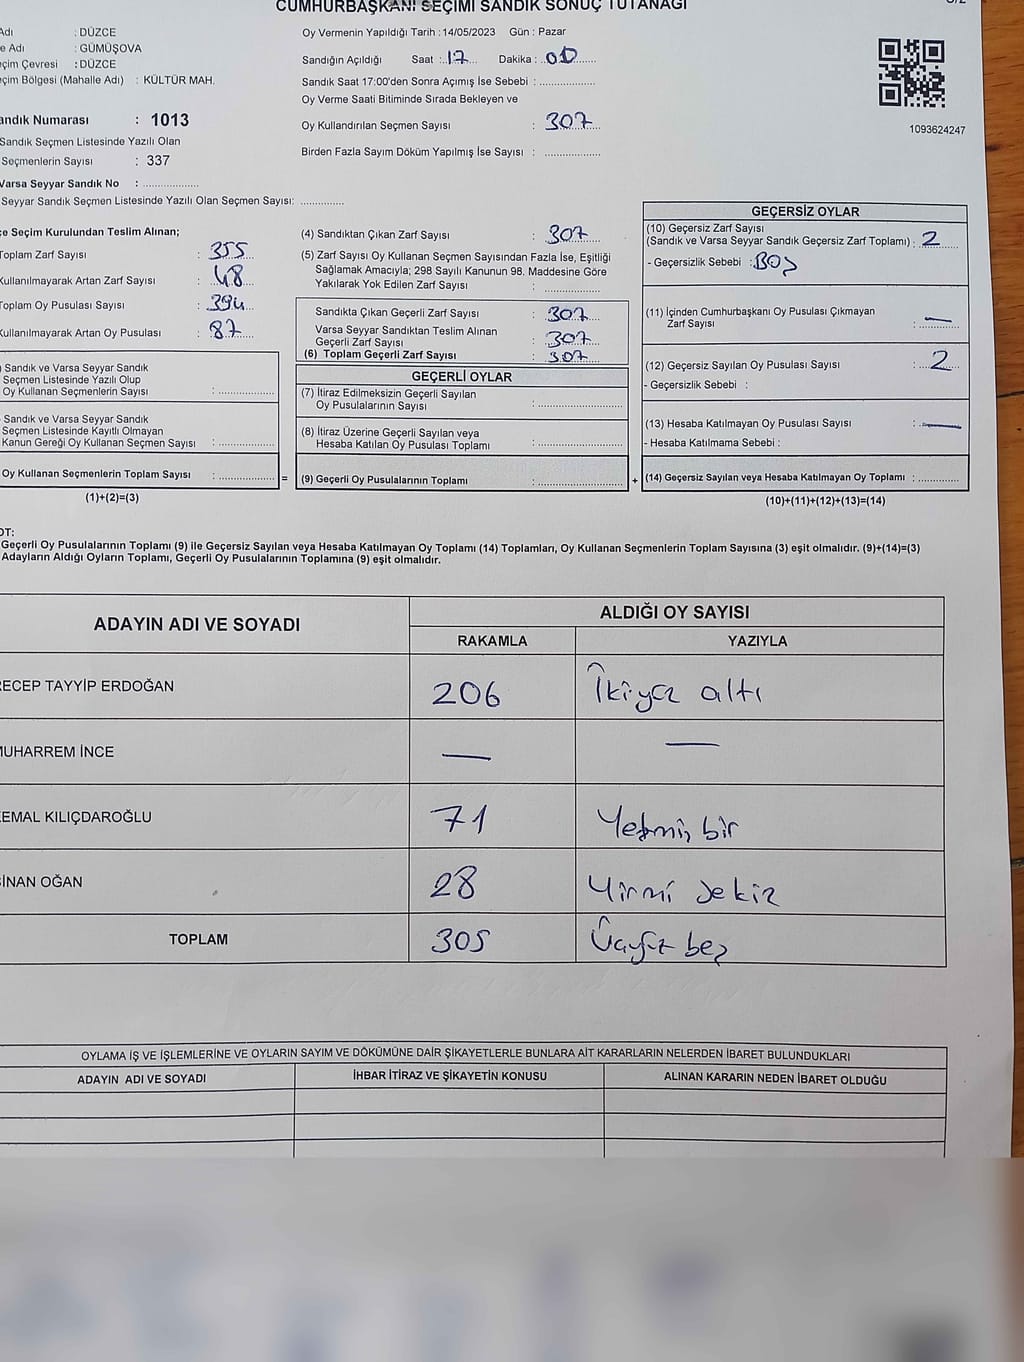 CUMHURBAŞKANI SEÇİMİ SANDIK SONUÇ TUTANAĞI
Adı : DÜZCE
e Adı : GÜMÜŞOVA
eçim Çevresi : DÜZCE
eçim Bölgesi (Mahalle Adı) : KÜLTÜR MAH.
andık Numarası : 1013
Sandık Seçmen Listesinde Yazılı Olan
Seçmenlerin Sayısı : 337
Varsa Seyyar Sandık No : ..................
Seyyar Sandık Seçmen Listesinde Yazılı Olan Seçmen Sayısı: .............
Oy Vermenin Yapıldığı Tarih : 14/05/2023 Gün : Pazar
Sandığın Açıldığı Saat : 17 Dakika : 00
Sandık Saat 17:00'den Sonra Açımış İse Sebebi : .................
Oy Verme Saati Bitiminde Sırada Bekleyen ve
Oy Kullandırılan Seçmen Sayısı : 307
Birden Fazla Sayım Döküm Yapılmış İse Sayısı : .................
1093624247
çe Seçim Kurulundan Teslim Alınan;
Toplam Zarf Sayısı : 355
Kullanılmayarak Artan Zarf Sayısı : 48
Toplam Oy Pusulası Sayısı : 394
Kullanılmayarak Artan Oy Pusulası : 87
) Sandık ve Varsa Seyyar Sandık
Seçmen Listesinde Yazılı Olup
Oy Kullanan Seçmenlerin Sayısı : .................
Sandık ve Varsa Seyyar Sandık
Seçmen Listesinde Kayıtlı Olmayan
Kanun Gereği Oy Kullanan Seçmen Sayısı : .................
Oy Kullanan Seçmenlerin Toplam Sayısı : ................. =
(1)+(2)=(3)
(4) Sandıktan Çıkan Zarf Sayısı : 307
(5) Zarf Sayısı Oy Kullanan Seçmen Sayısından Fazla İse, Eşitliği
Sağlamak Amacıyla; 298 Sayılı Kanunun 98. Maddesine Göre
Yakılarak Yok Edilen Zarf Sayısı : .................
Sandıkta Çıkan Geçerli Zarf Sayısı : 307
Varsa Seyyar Sandıktan Teslim Alınan
Geçerli Zarf Sayısı : 307
(6) Toplam Geçerli Zarf Sayısı : 307
GEÇERLİ OYLAR
(7) İtiraz Edilmeksizin Geçerli Sayılan
Oy Pusulalarının Sayısı : .................
(8) İtiraz Üzerine Geçerli Sayılan veya
Hesaba Katılan Oy Pusulası Toplamı : .................
(9) Geçerli Oy Pusulalarının Toplamı : ................. +
GEÇERSİZ OYLAR
(10) Geçersiz Zarf Sayısı
(Sandık ve Varsa Seyyar Sandık Geçersiz Zarf Toplamı) : 2
- Geçersizlik Sebebi : BOŞ
(11) İçinden Cumhurbaşkanı Oy Pusulası Çıkmayan
Zarf Sayısı : —
(12) Geçersiz Sayılan Oy Pusulası Sayısı : 2
- Geçersizlik Sebebi :
(13) Hesaba Katılmayan Oy Pusulası Sayısı : —
- Hesaba Katılmama Sebebi :
(14) Geçersiz Sayılan veya Hesaba Katılmayan Oy Toplamı : .............
(10)+(11)+(12)+(13)=(14)
OT:
Geçerli Oy Pusulalarının Toplamı (9) ile Geçersiz Sayılan veya Hesaba Katılmayan Oy Toplamı (14) Toplamları, Oy Kullanan Seçmenlerin Toplam Sayısına (3) eşit olmalıdır. (9)+(14)=(3)
Adayların Aldığı Oyların Toplamı, Geçerli Oy Pusulalarının Toplamına (9) eşit olmalıdır.
ADAYIN ADI VE SOYADI ALDIĞI OY SAYISI
RAKAMLA YAZIYLA
RECEP TAYYİP ERDOĞAN 206 İkiyüz altı
MUHARREM İNCE — —
KEMAL KILIÇDAROĞLU 71 Yetmiş bir
SİNAN OĞAN 28 Yirmi sekiz
TOPLAM 305 Üçyüz beş
OYLAMA İŞ VE İŞLEMLERİNE VE OYLARIN SAYIM VE DÖKÜMÜNE DAİR ŞİKAYETLERLE BUNLARA AİT KARARLARIN NELERDEN İBARET BULUNDUKLARI
ADAYIN ADI VE SOYADI İHBAR İTİRAZ VE ŞİKAYETİN KONUSU ALINAN KARARIN NEDEN İBARET OLDUĞU